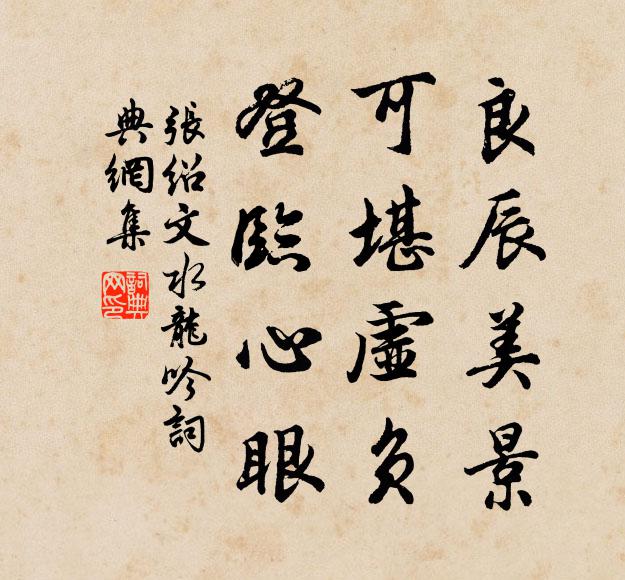 良辰美景
可堪虛負
登臨心眼
張紹文水龍吟詞
典網集
詞典
网印